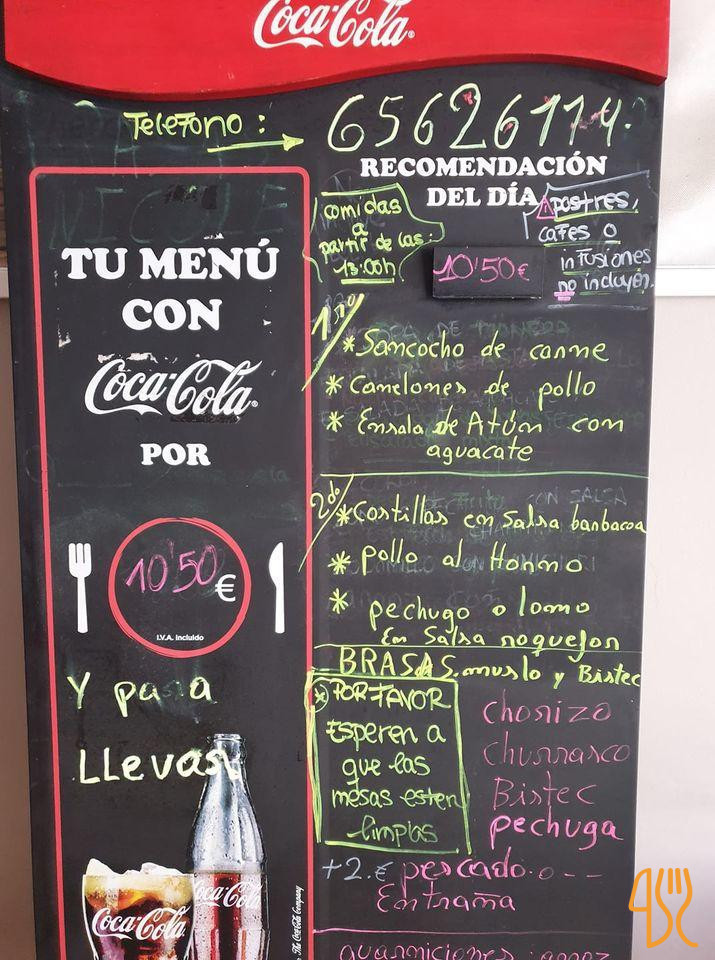 Coca-Cola
Telefono :
656261114
RECOMENDACIÓN
DEL DÍA
comidas
a
partir de las:
13:00h
postres,
cafes o
infusiones
no incluyen.
10'50€
TU MENÚ
CON
Coca-Cola
POR
10'50 €
I.V.A. incluido
Y para
LLevar
1º
* Sancocho de carne
* Canelones de pollo
* Ensala de Atún con
aguacate
2do
* costillas en salsa barbacoa
* pollo al Horno
* pechugo o lomo
En Salsa roquejon
BRASAS. muslo y Bistec
* POR FAVOR
Esperen a
que las
mesas esten
limpias
Chorizo
Churrasco
Bistec
pechuga
+2.€ pescado o --
Entraña
guarniciones: arroz
Coca-Cola
Coca-Cola
The Coca-Cola Company